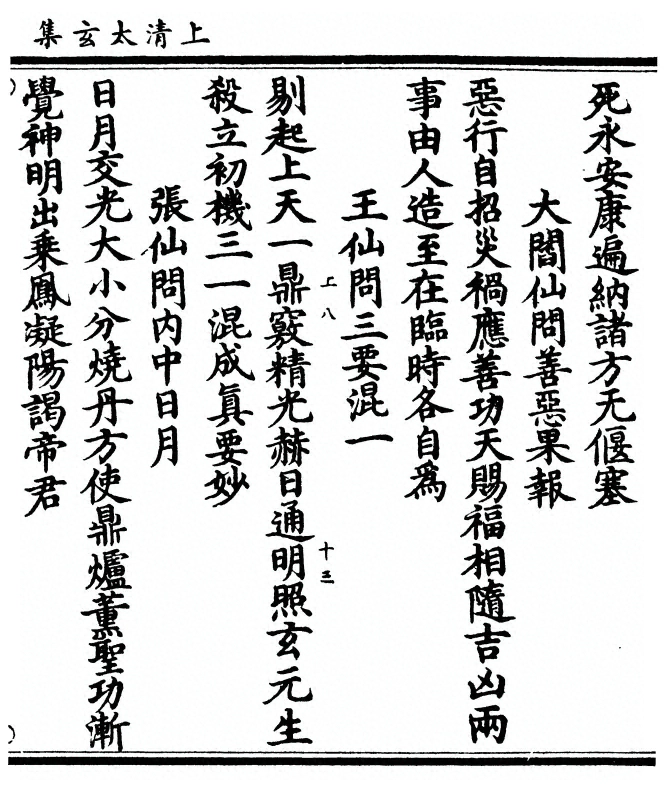 上清太玄集
死永安康遍納諸方无偃塞
大閻仙問善惡果報
惡行自招災禍應善功天賜福相隨吉凶兩
事由人造至在臨時各自爲
王仙問三要混一
剔起上天一鼎竅精光赫日通明照玄元生
上八
十三
殺立初機三一混成眞要妙
張仙問內中日月
日月交光大小分燒丹方使鼎爐薰聖功漸
覺神明出乘鳳凝陽謁帝君